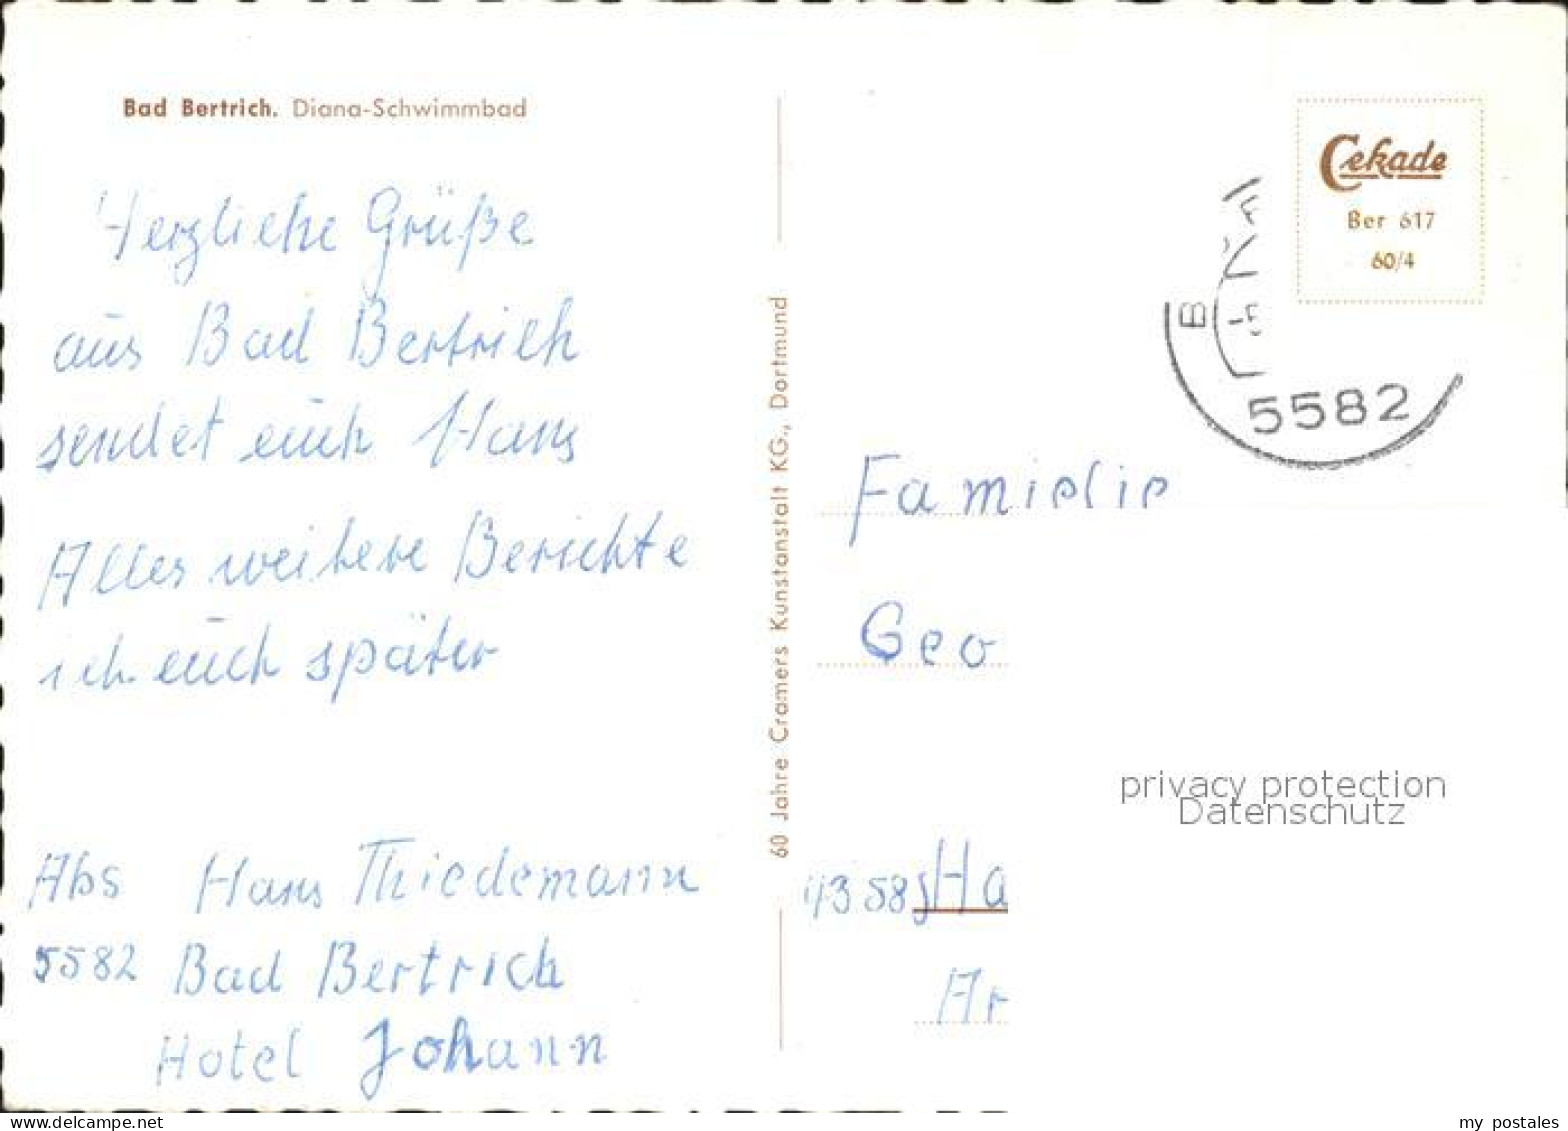 Bad Bertrich. Diana-Schwimmbad
Herzliche Grüße
aus Bad Bertrich
sendet euch Hans
Alles weitere Berichte
ich euch später
Abs Hans Thiedemann
5582 Bad Bertrich
Hotel Johann
60 Jahre Cramers Kunstanstalt KG., Dortmund
Cekade
Ber 617
60/4
5582
Familie
Geo
Ha
Ar
privacy protection
Datenschutz
my postales